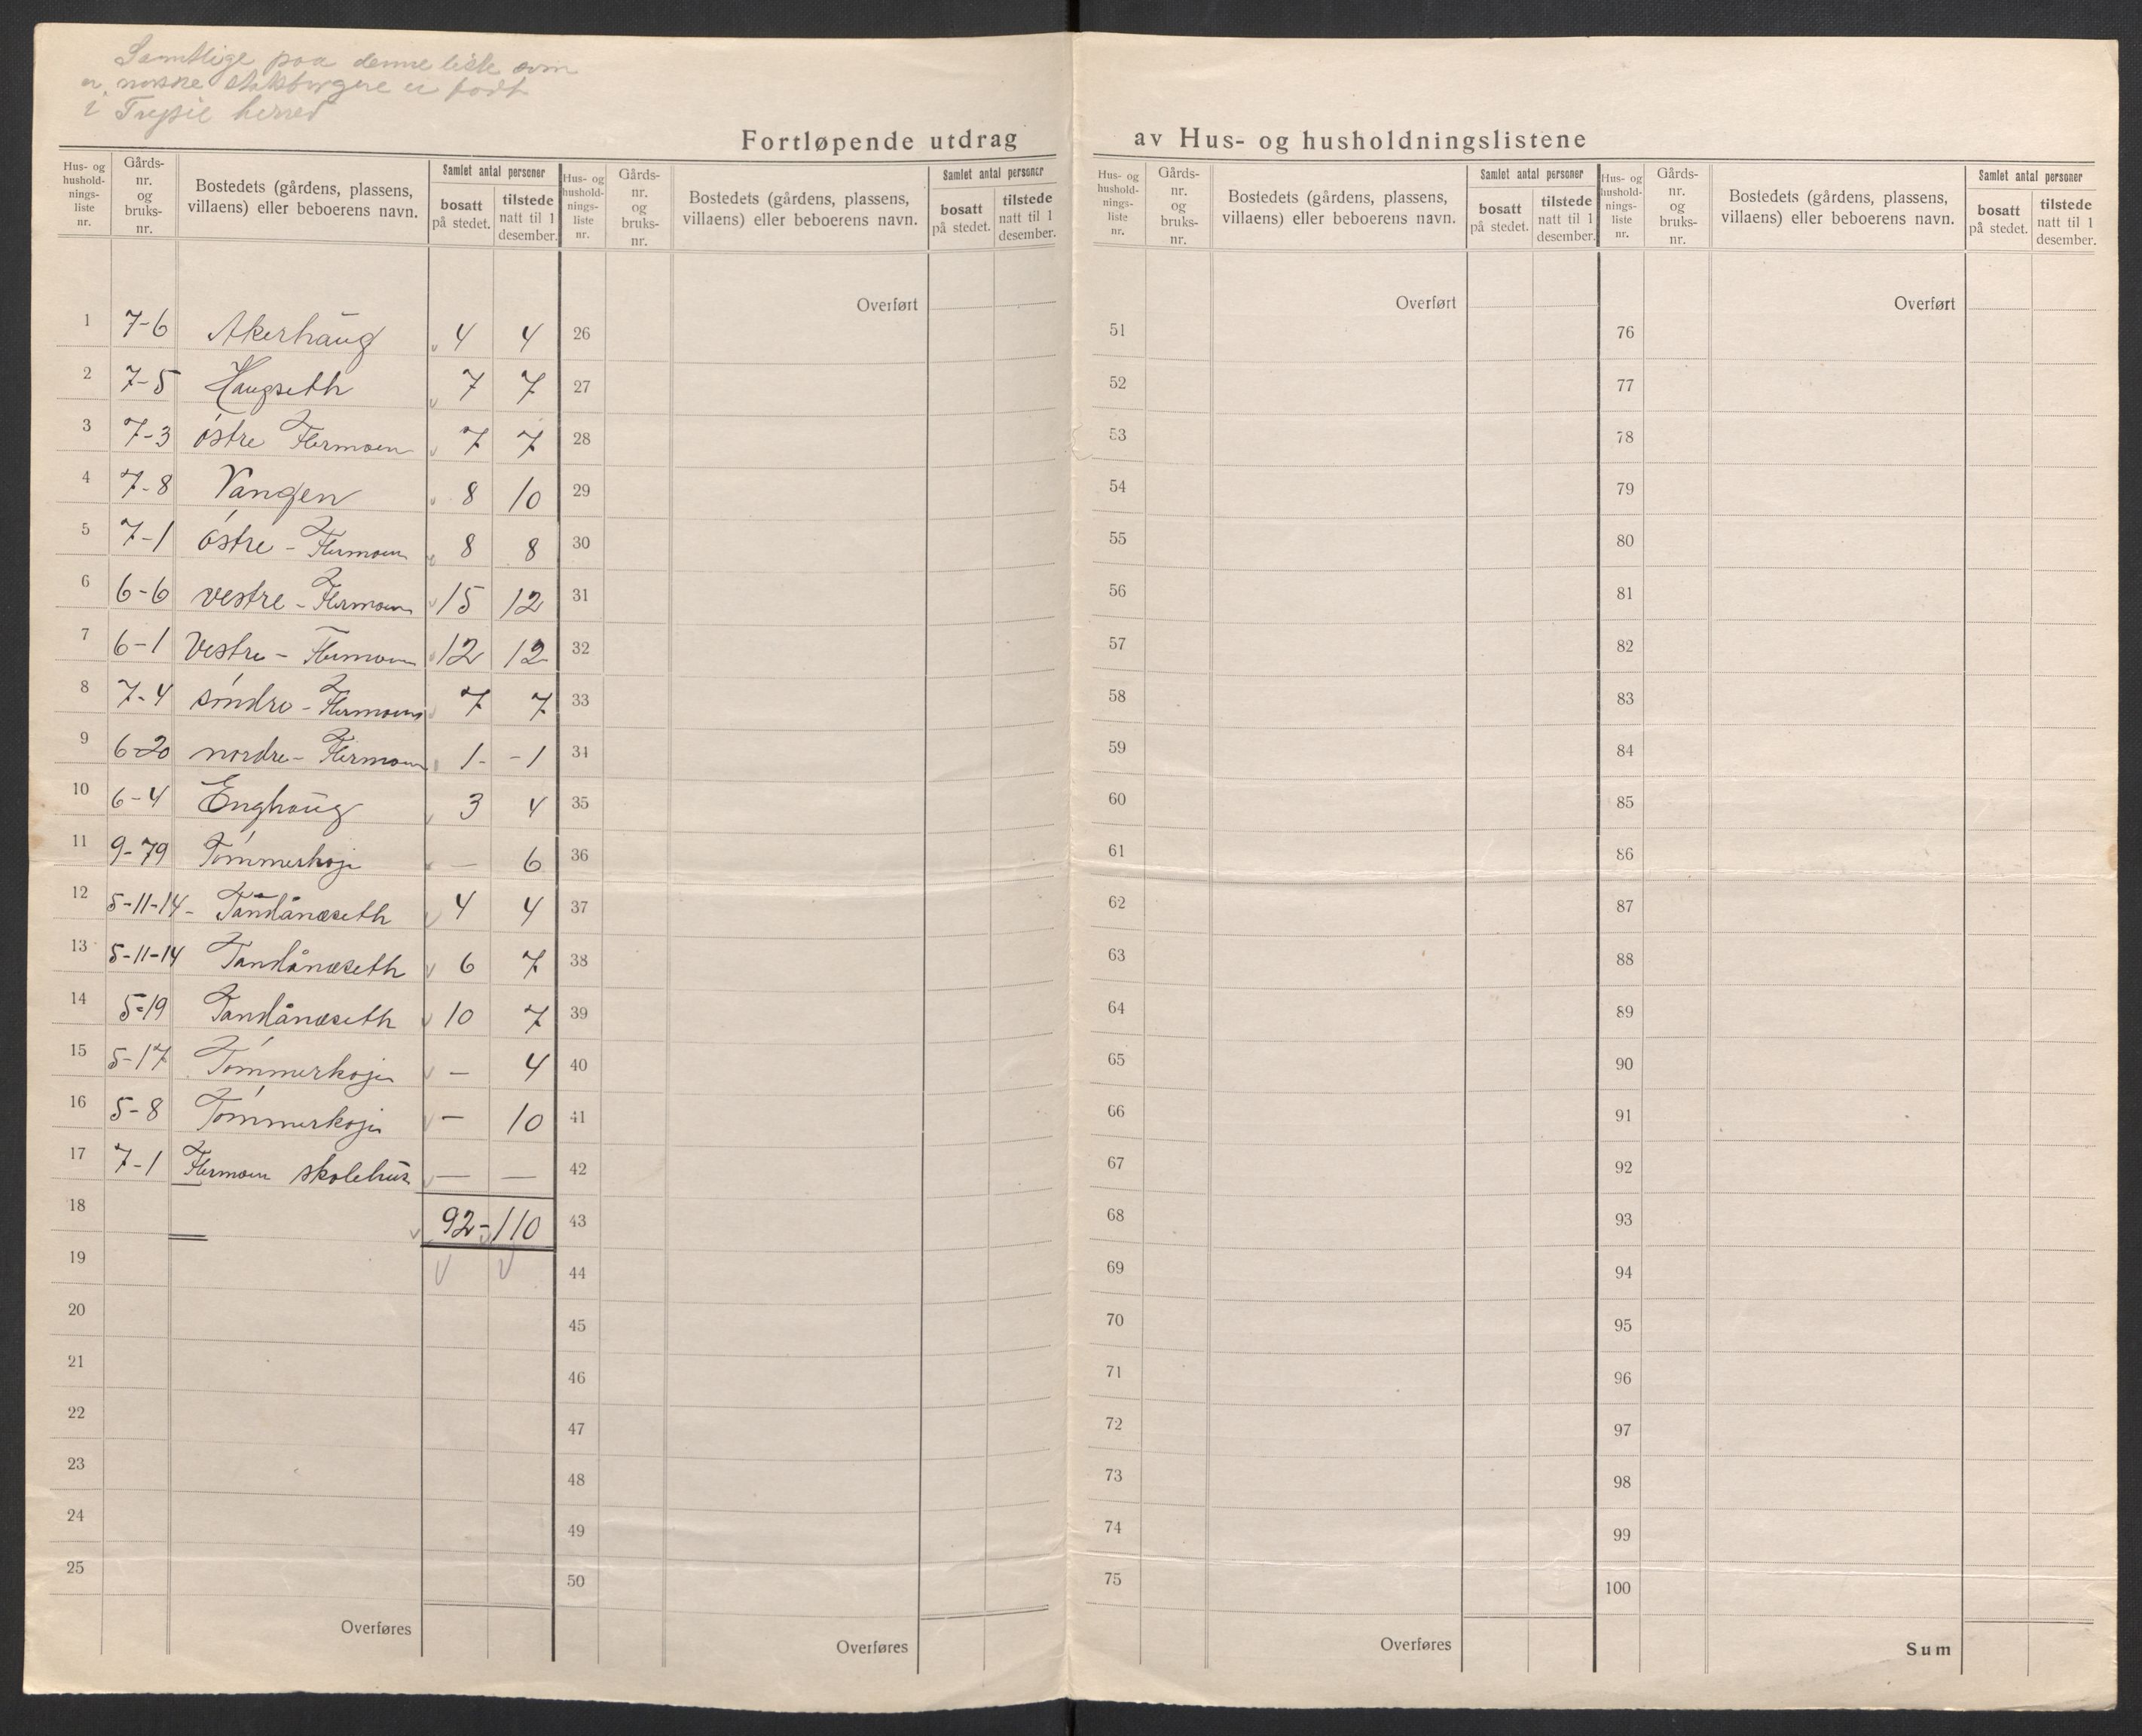 Samtlige paa denne liste som
er norske statsborgere er født
i Trysil herred
Fortløpende utdrag av Hus- og husholdningslistene
Hus- og hushold-nings-liste nr. Gårds-nr. og bruks-nr. Bostedets (gårdens, plassens, villaens) eller beboerens navn. Samlet antal personer bosatt på stedet. tilstede natt til 1 desember.
Hus- og hushold-nings-liste nr. Gårds-nr. og bruks-nr. Bostedets (gårdens, plassens, villaens) eller beboerens navn. Samlet antal personer bosatt på stedet. tilstede natt til 1 desember.
Hus- og hushold-nings-liste nr. Gårds-nr. og bruks-nr. Bostedets (gårdens, plassens, villaens) eller beboerens navn. Samlet antal personer bosatt på stedet. tilstede natt til 1 desember.
Hus- og hushold-nings-liste nr. Gårds-nr. og bruks-nr. Bostedets (gårdens, plassens, villaens) eller beboerens navn. Samlet antal personer bosatt på stedet. tilstede natt til 1 desember.
Overført Overført Overført
1 7-6 Akerhaug 4 4 26 51 76
2 7-5 Haugseth 7 7 27 52 77
3 7-3 østre Flermoen 7 7 28 53 78
4 7-8 Vangen 8 10 29 54 79
5 7-1 østre - Flermoen 8 8 30 55 80
6 6-6 vestre - Flermoen 15 12 31 56 81
7 6-1 Vestre - Flermoen 12 12 32 57 82
8 7-4 søndre - Flermoen 7 7 33 58 83
9 6-20 nordre - Flermoen 1- -1 34 59 84
10 6-4 Enghaug 3 4 35 60 85
11 9-79 Tømmerkoje — 6 36 61 86
12 5-11-14- Tandånæseth 4 4 37 62 87
13 5-11-14 Tandånæseth 6 7 38 63 88
14 5-19 Tandånæseth 10 7 39 64 89
15 5-17 Tømmerkoje — 4 40 65 90
16 5-8 Tømmerkoje — 10 41 66 91
17 7-1 Flermoen skolehus — — 42 67 92
18 92-110 43 68 93
19 44 69 94
20 45 70 95
21 46 71 96
22 47 72 97
23 48 73 98
24 49 74 99
25 50 75 100
Overføres Overføres Overføres Sum